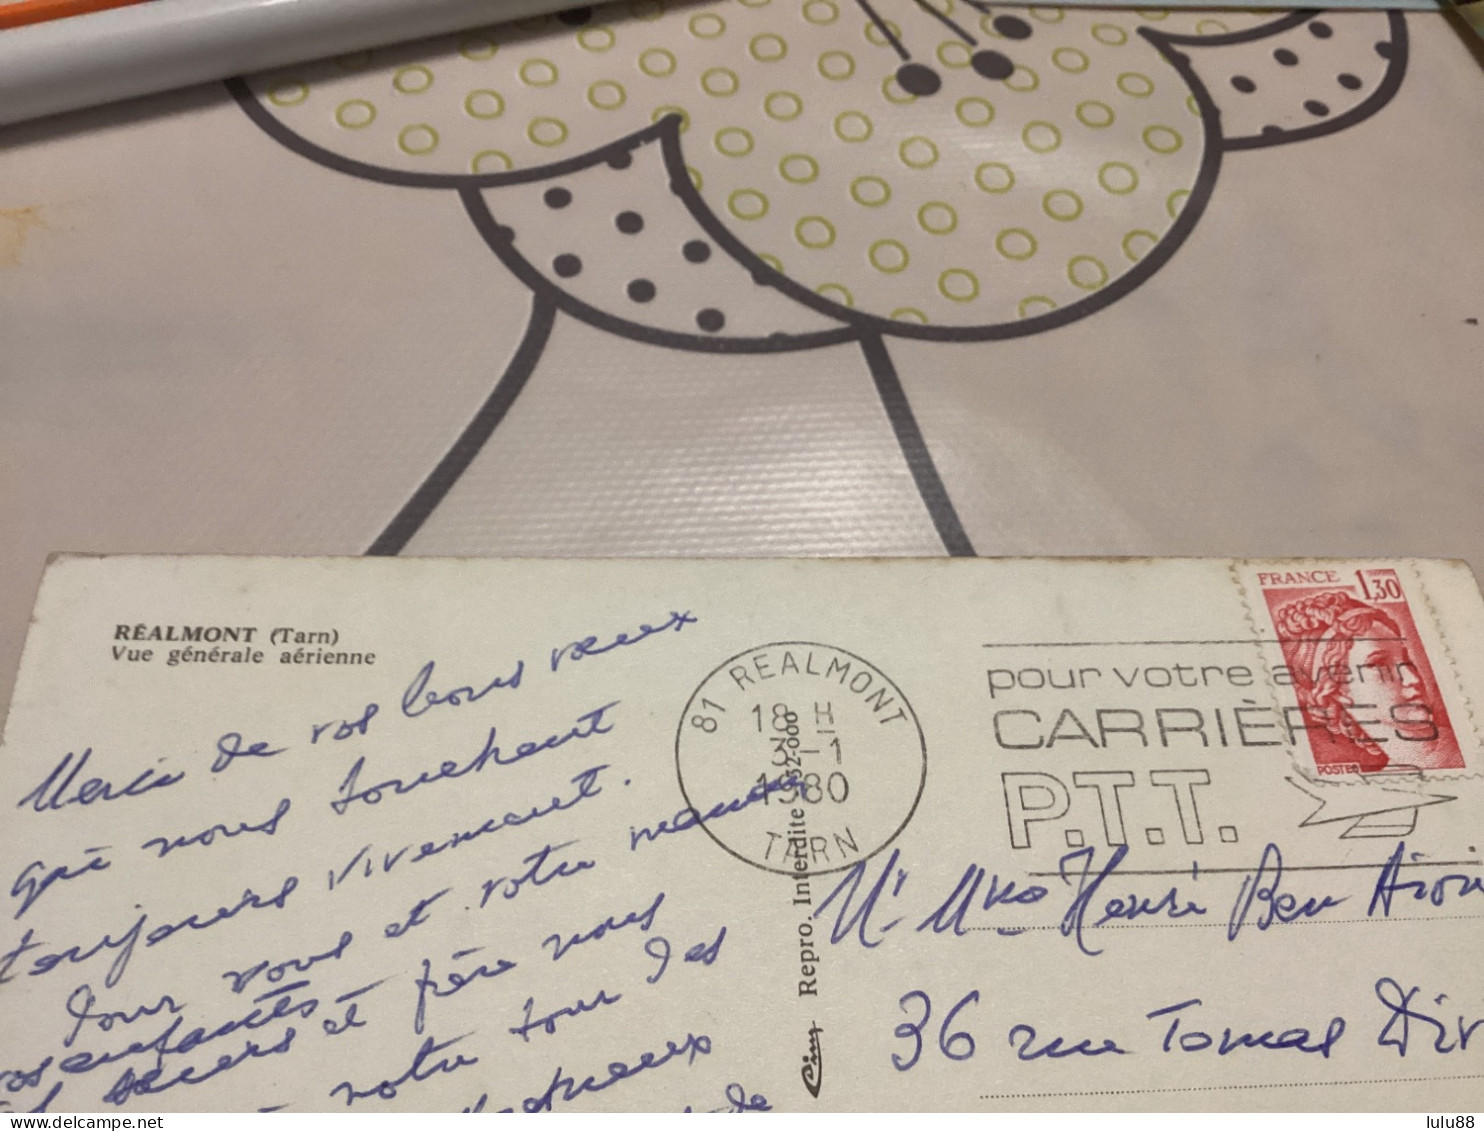 RÉALMONT (Tarn)
Vue générale aérienne
Merci de vos bons vœux
qui nous touchent
toujours vivement.
Pour vous et votre maman
vos enfants
sœurs et frère nous
à notre tour les
de
81 REALMONT
18 H
3-1
1980
TARN
pour votre avenir
CARRIÈRES
P.T.T.
FRANCE 1,30
POSTES
Cim Repro. Interdite 52-000
Mr Mme Henri Ben Aïon
36 rue Tomas Div
delcampe.net
lulu88